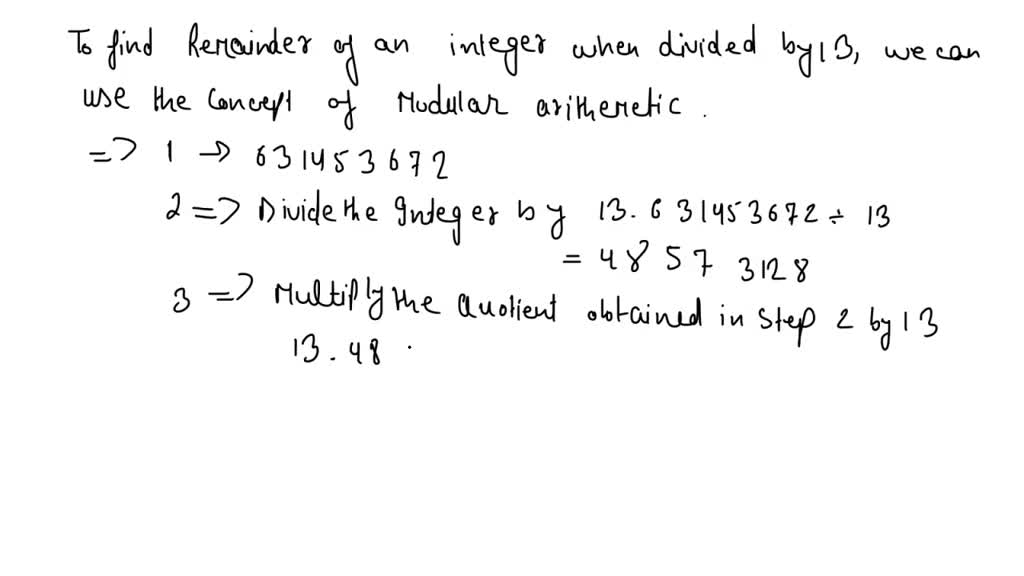 To find Remainder of an integer when divided by 13, we can
use the Concept of Modular arithmetic.
=> 1 → 631453672
2 => Divide the Integer by 13. 631453672 ÷ 13
= 48573128
3 => Multiply the Quotient obtained in Step 2 by 13
13.48 .